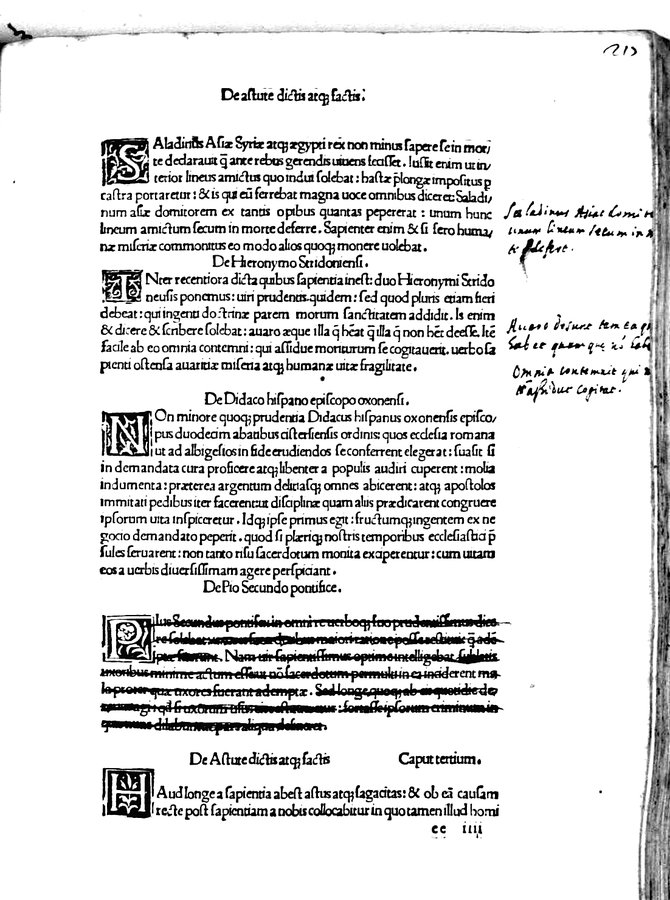 213
De astute dictis atq; factis.
SAladinus Asiæ Syriæ atq; ægypti rex non minus sapere se in mori
te declarauit q̃ ante rebus gerendis uiuens fecisset. Iussit enim ut in/
terior lineus amictus quo indui solebat: hastæ p̃longæ impositus p
castra portaretur: & is qui eũ ferrebat magna uoce omnibus diceret: Saladi/
num asiæ domitorem ex tantis opibus quantas pepererat: unum hunc
lineum amictum secum in morte deferre. Sapienter enim & si sero huma/
næ miseriæ commonitus eo modo alios quoq; monere uolebat.
De Hieronymo Stridoniensi.
INter recentiora dicta quibus sapientia inest: duo Hieronymi Strido
neusis ponemus: uiri prudentis quidem: sed quod pluris etiam fieri
debeat: qui ingenti doctrinæ parem morum sanctitatem addidit. Is enim
& dicere & scribere solebat: auaro æque illa q̃ hẽat q̃ illa q̃ non hẽt deesse. Itẽ
facile ab eo omnia contemni: qui assidue moriturum se cogitauerit. uerbo sa
pienti ostensa auaritiæ miseria atq; humanæ uitæ fragilitate.
De Didaco hispano episcopo oxonensi.
NOn minore quoq; prudentia Didacus hispanus oxonensis episco/
pus duodecim abatibus cistersiensis ordinis: quos ecclesia romana
ut ad albigesios in fide erudiendos se conferrent elegerat: suasit si
in demandata cura proficere atq; libenter a populis audiri cuperent: molia
indumenta: præterea argentum delitiasq; omnes abicerent: atq; apostolos
immitati pedibus iter facerent ut disciplinæ quam aliis prædicarent congruere
ipsorum uita inspiceretur. Idq; ipse primus egit: fructumq; ingentem ex ne
gocio demandato peperit. quod si plæriq; nostris temporibus ecclesiastici p̃
sules seruarent: non tanto risu sacerdotum monita exciperentur: cum uitam
eos a uerbis diuersissimam agere perspiciant.
De Pio Secundo pontifice.
PIus Secundus pontifex in omni re uerboq; suo prudentissimus dice
re solebat
Nam uir sapientissimus optime intelligebat sublatis
uxoribus minime actum esse ut nõ sacerdotum permulti in ea inciderent ma
la propter quæ uxores fuerant ademptæ. Sed longe quoq; ab ei quotidie de
De Astute dictis atq; factis Caput tertium.
HAud longe a sapientia abest astus atq; sagacitas: & ob eã causam
recte post sapientiam a nobis collocabitur in quo tamen illud homi
ee iiii
Saladinus Asiae Domi
unum lineum secum in
Auaro desunt tam ea q
habet quam que nõ habe
Omnia contemnit qui
assidue cogitat.